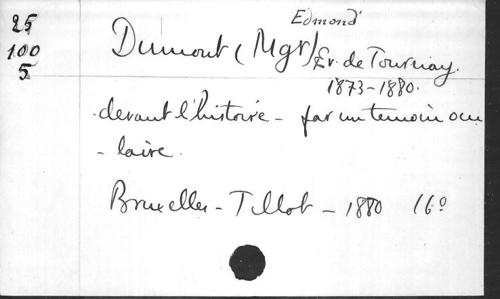 25
100
5
Edmond
Dumont (Mgr) Ev. de Tournay.
1873-1880.
devant l'histoire - par un temoin ocu
- laire.
Bruxelles - Tillot - 1880 16°